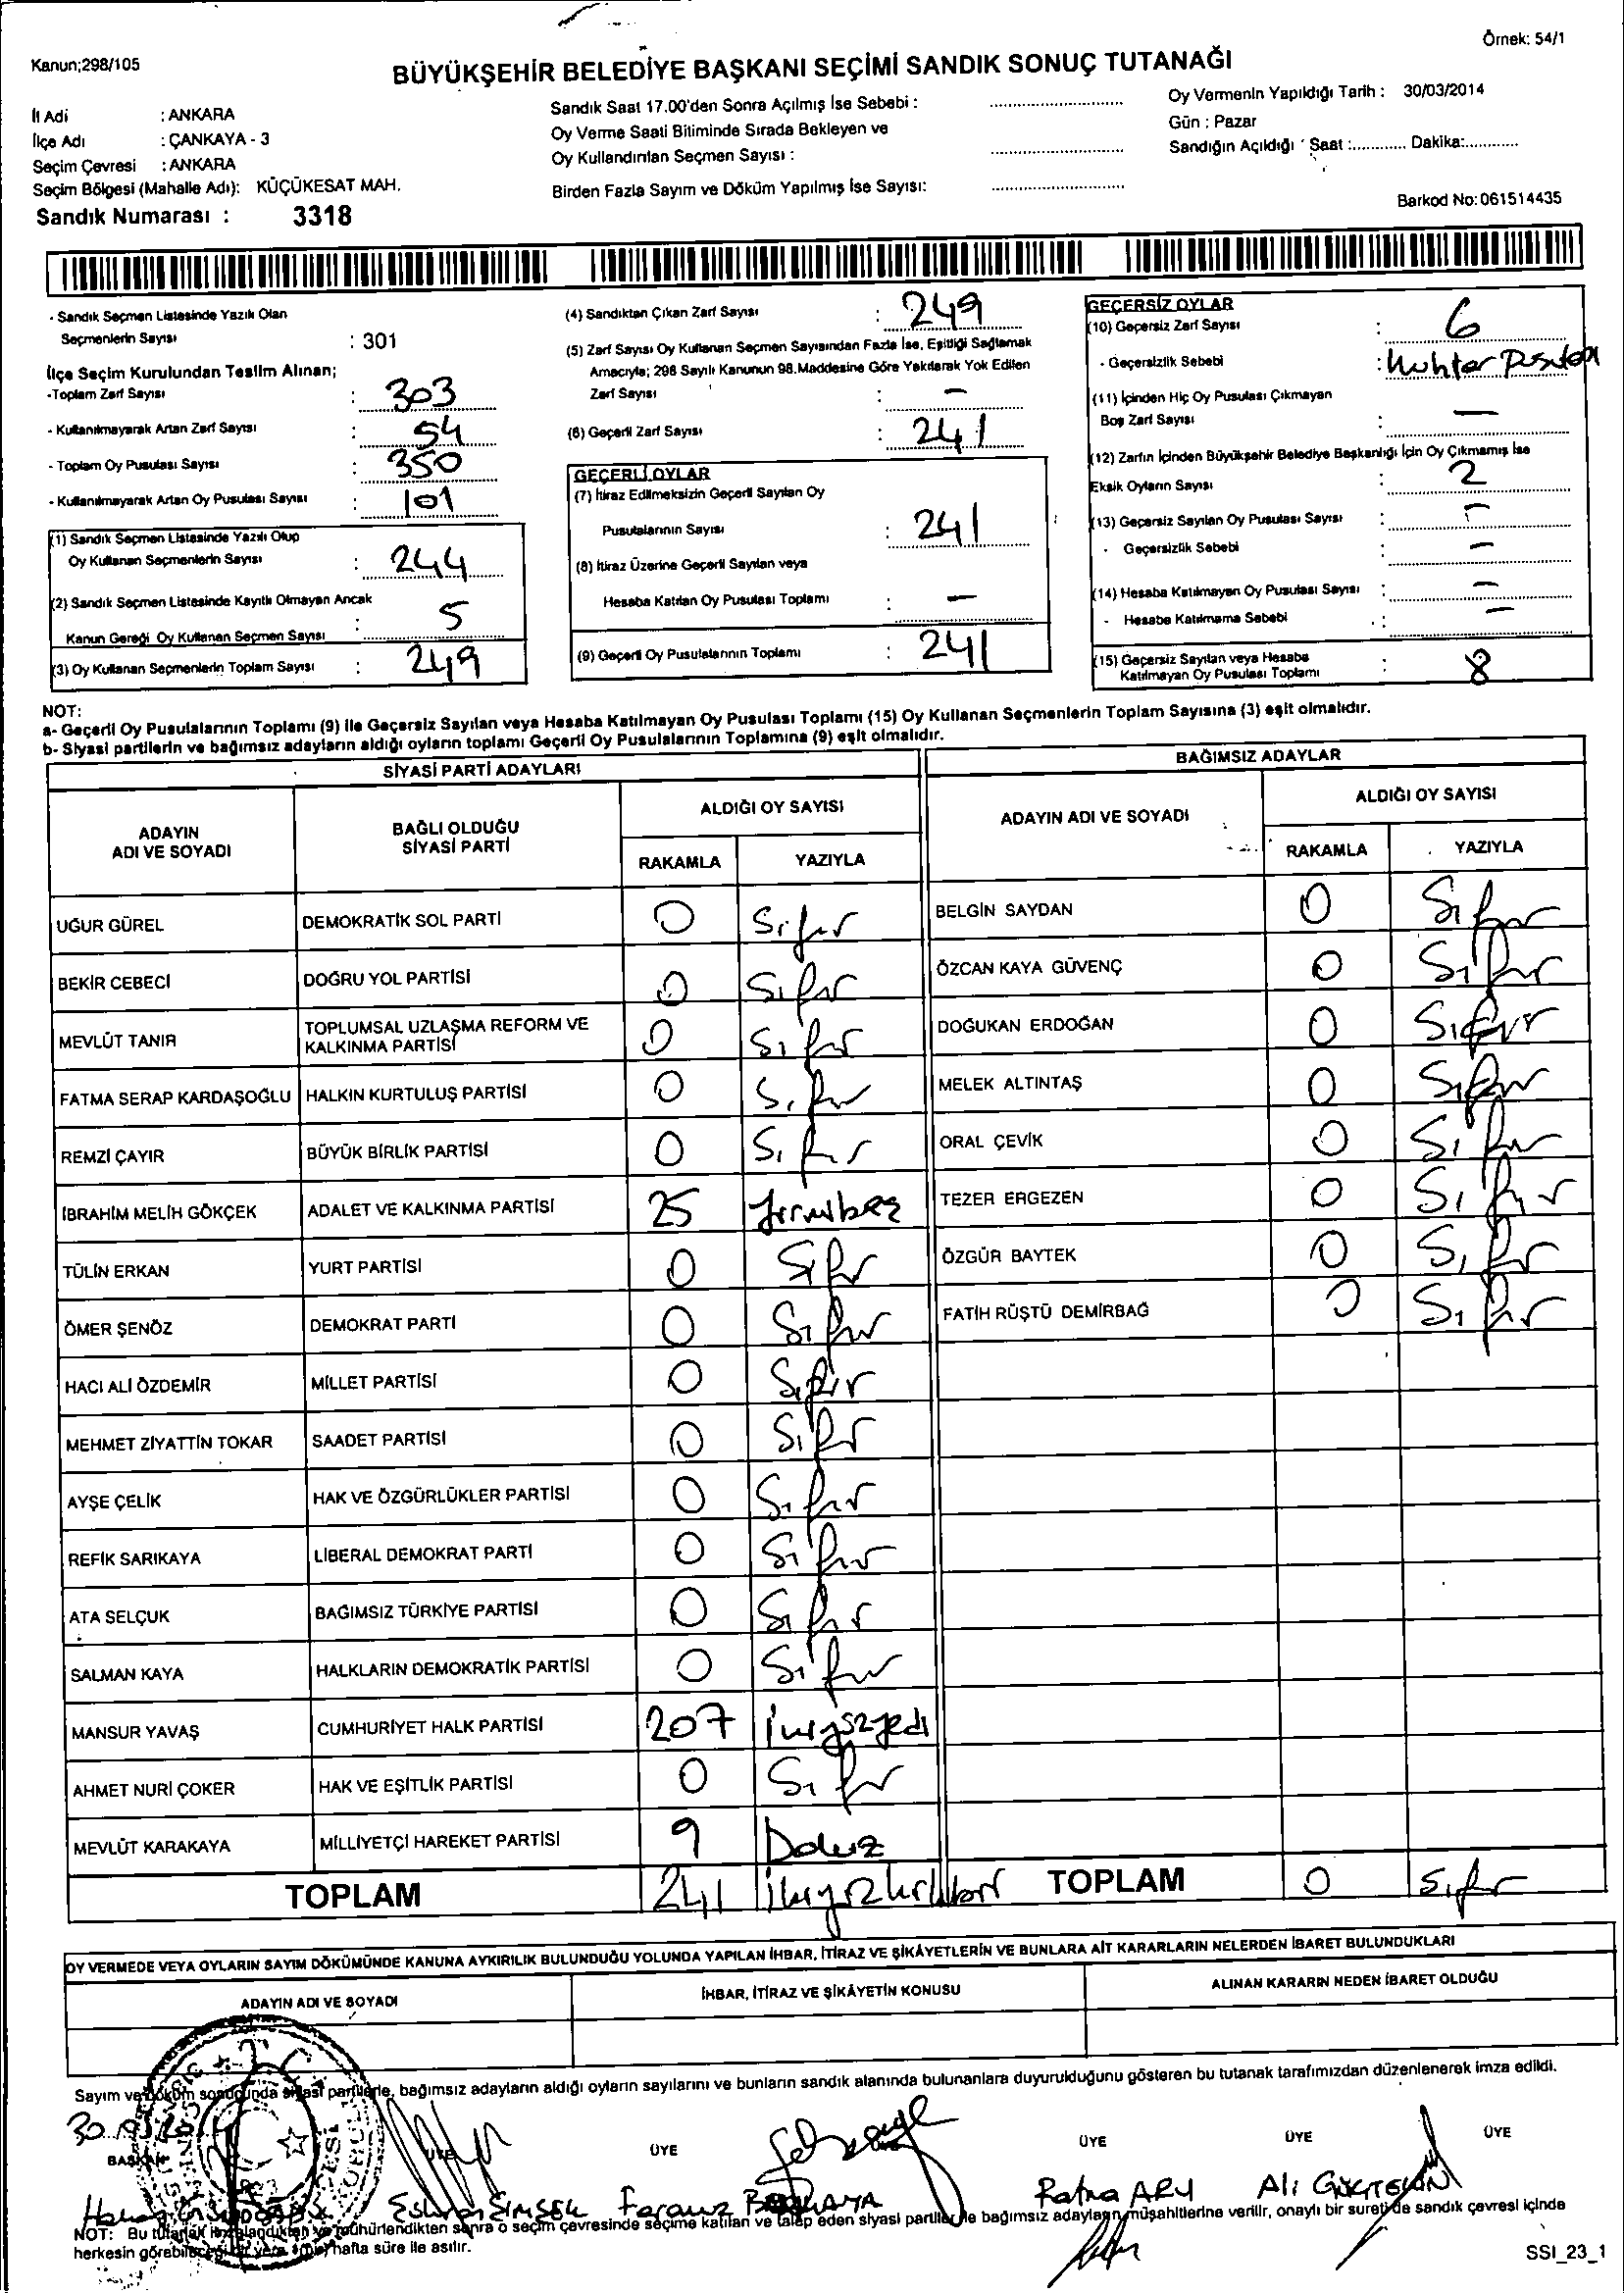 Örnek: 54/1
Kanun;298/105
BÜYÜKŞEHİR BELEDİYE BAŞKANI SEÇİMİ SANDIK SONUÇ TUTANAĞI
İl Adi : ANKARA
İlçe Adı : ÇANKAYA - 3
Seçim Çevresi : ANKARA
Seçim Bölgesi (Mahalle Adı): KÜÇÜKESAT MAH.
Sandık Numarası : 3318
Sandık Saat 17.00'den Sonra Açılmış İse Sebebi :
Oy Verme Saati Bitiminde Sırada Bekleyen ve
Oy Kullandırılan Seçmen Sayısı :
Birden Fazla Sayım ve Döküm Yapılmış İse Sayısı:
Oy Vermenin Yapıldığı Tarih : 30/03/2014
Gün : Pazar
Sandığın Açıldığı Saat :............ Dakika:............
Barkod No:061514435
- Sandık Seçmen Listesinde Yazılı Olan
Seçmenlerin Sayısı : 301
İlçe Seçim Kurulundan Teslim Alınan;
-Toplam Zarf Sayısı : 303
- Kullanılmayarak Artan Zarf Sayısı : 54
- Toplam Oy Pusulası Sayısı : 350
- Kullanılmayarak Artan Oy Pusulası Sayısı : 101
(1) Sandık Seçmen Listesinde Yazılı Olup
Oy Kullanan Seçmenlerin Sayısı : 244
(2) Sandık Seçmen Listesinde Kayıtlı Olmayan Ancak
Kanun Gereği Oy Kullanan Seçmen Sayısı : 5
(3) Oy Kullanan Seçmenlerin Toplam Sayısı : 249
(4) Sandıktan Çıkan Zarf Sayısı : 249
(5) Zarf Sayısı Oy Kullanan Seçmen Sayısından Fazla İse, Eşitliği Sağlamak
Amacıyla; 298 Sayılı Kanunun 98.Maddesine Göre Yakılarak Yok Edilen
Zarf Sayısı : –
(6) Geçerli Zarf Sayısı : 241
GEÇERLİ OYLAR
(7) İtiraz Edilmeksizin Geçerli Sayılan Oy
Pusulalarının Sayısı : 241
(8) İtiraz Üzerine Geçerli Sayılan veya
Hesaba Katılan Oy Pusulası Toplamı : –
(9) Geçerli Oy Pusulalarının Toplamı : 241
GEÇERSİZ OYLAR
(10) Geçersiz Zarf Sayısı : 6
- Geçersizlik Sebebi : Muhtar Pusulası
(11) İçinden Hiç Oy Pusulası Çıkmayan
Boş Zarf Sayısı : –
(12) Zarfın İçinden Büyükşehir Belediye Başkanlığı İçin Oy Çıkmamış İse
Eksik Oyların Sayısı : 2
(13) Geçersiz Sayılan Oy Pusulası Sayısı : –
- Geçersizlik Sebebi : –
(14) Hesaba Katılmayan Oy Pusulası Sayısı : –
- Hesaba Katılmama Sebebi : –
(15) Geçersiz Sayılan veya Hesaba
Katılmayan Oy Pusulası Toplamı : 8
NOT:
a- Geçerli Oy Pusulalarının Toplamı (9) ile Geçersiz Sayılan veya Hesaba Katılmayan Oy Pusulası Toplamı (15) Oy Kullanan Seçmenlerin Toplam Sayısına (3) eşit olmalıdır.
b- Siyasi partilerin ve bağımsız adayların aldığı oyların toplamı Geçerli Oy Pusulalarının Toplamına (9) eşit olmalıdır.
SİYASİ PARTİ ADAYLARI
ADAYIN ADI VE SOYADI BAĞLI OLDUĞU SİYASİ PARTİ ALDIĞI OY SAYISI
RAKAMLA YAZIYLA
UĞUR GÜREL DEMOKRATİK SOL PARTİ 0 Sıfır
BEKİR CEBECİ DOĞRU YOL PARTİSİ 0 Sıfır
MEVLÜT TANIR TOPLUMSAL UZLAŞMA REFORM VE KALKINMA PARTİSİ 0 Sıfır
FATMA SERAP KARDAŞOĞLU HALKIN KURTULUŞ PARTİSİ 0 Sıfır
REMZİ ÇAYIR BÜYÜK BİRLİK PARTİSİ 0 Sıfır
İBRAHİM MELİH GÖKÇEK ADALET VE KALKINMA PARTİSİ 25 Yirmibeş
TÜLİN ERKAN YURT PARTİSİ 0 Sıfır
ÖMER ŞENÖZ DEMOKRAT PARTİ 0 Sıfır
HACI ALİ ÖZDEMİR MİLLET PARTİSİ 0 Sıfır
MEHMET ZİYATTİN TOKAR SAADET PARTİSİ 0 Sıfır
AYŞE ÇELİK HAK VE ÖZGÜRLÜKLER PARTİSİ 0 Sıfır
REFİK SARIKAYA LİBERAL DEMOKRAT PARTİ 0 Sıfır
ATA SELÇUK BAĞIMSIZ TÜRKİYE PARTİSİ 0 Sıfır
SALMAN KAYA HALKLARIN DEMOKRATİK PARTİSİ 0 Sıfır
MANSUR YAVAŞ CUMHURİYET HALK PARTİSİ 207 İkiyüzyedi
AHMET NURİ ÇOKER HAK VE EŞİTLİK PARTİSİ 0 Sıfır
MEVLÜT KARAKAYA MİLLİYETÇİ HAREKET PARTİSİ 9 Dokuz
TOPLAM 241 İkiyüzkırkbir
BAĞIMSIZ ADAYLAR
ADAYIN ADI VE SOYADI ALDIĞI OY SAYISI
RAKAMLA YAZIYLA
BELGİN SAYDAN 0 Sıfır
ÖZCAN KAYA GÜVENÇ 0 Sıfır
DOĞUKAN ERDOĞAN 0 Sıfır
MELEK ALTINTAŞ 0 Sıfır
ORAL ÇEVİK 0 Sıfır
TEZER ERGEZEN 0 Sıfır
ÖZGÜR BAYTEK 0 Sıfır
FATİH RÜŞTÜ DEMİRBAĞ 0 Sıfır
TOPLAM 0 Sıfır
OY VERMEDE VEYA OYLARIN SAYIM DÖKÜMÜNDE KANUNA AYKIRILIK BULUNDUĞU YOLUNDA YAPILAN İHBAR, İTİRAZ VE ŞİKÂYETLERİN VE BUNLARA AİT KARARLARIN NELERDEN İBARET BULUNDUKLARI
ADAYIN ADI VE SOYADI İHBAR, İTİRAZ VE ŞİKÂYETİN KONUSU ALINAN KARARIN NEDEN İBARET OLDUĞU
Sayım ve döküm sonucunda siyasi partilerle, bağımsız adayların aldığı oyların sayılarını ve bunların sandık alanında bulunanlara duyurulduğunu gösteren bu tutanak tarafımızdan düzenlenerek imza edildi.
BAŞKAN ÜYE ÜYE ÜYE ÜYE ÜYE ÜYE
ŞİMŞEK Ali GÖKTEKİN
NOT: Bu tutanak imzalandıktan ve mühürlendikten sonra o seçim çevresinde seçime katılan ve talep eden siyasi partiler ile bağımsız adayların müşahitlerine verilir, onaylı bir sureti de sandık çevresi içinde
herkesin görebileceği bir yere hafta süre ile asılır.
SSI_23_1